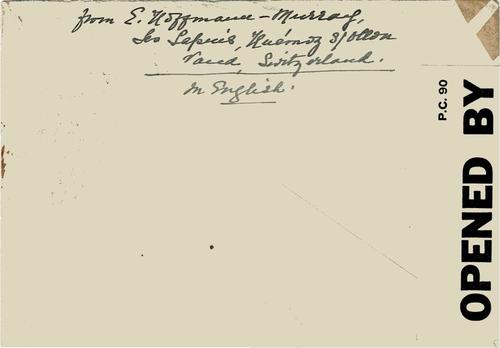 from E. Hoffmann-Murray,
Les Sapins, Huémoz s/Ollon
Vaud, Switzerland.
In English.
P.C. 90
OPENED BY